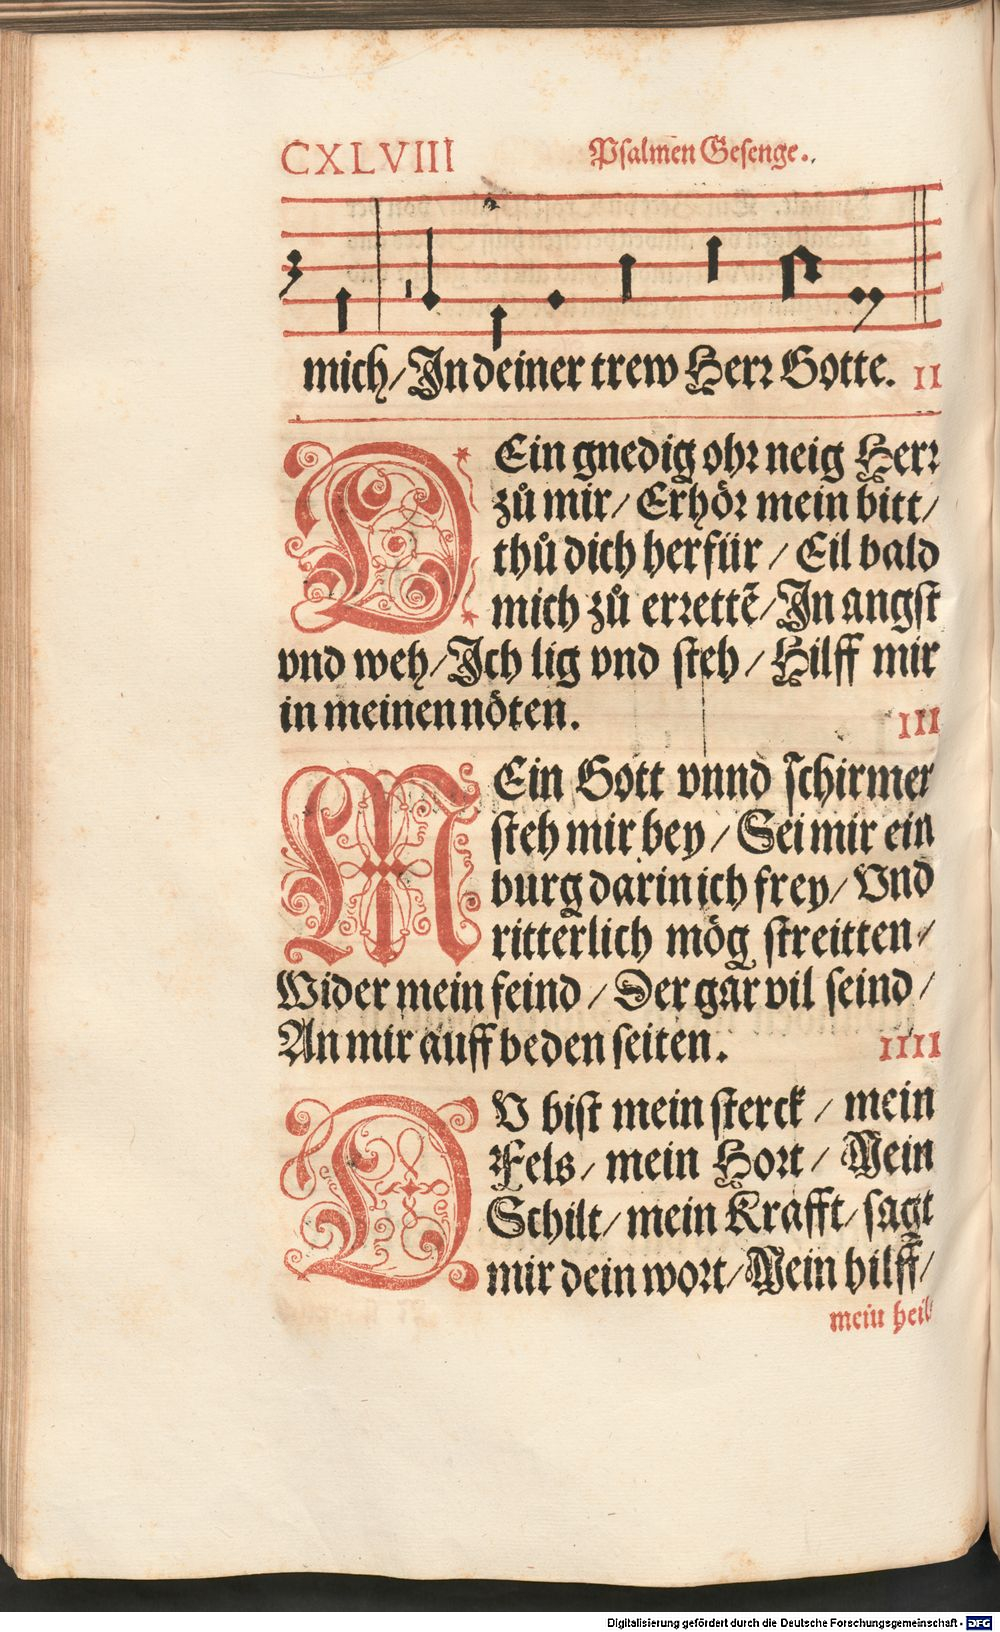 CXLVIII Psalmen Gesenge.
mich/ In deiner trew Herr Gotte. II
DEin gnedig ohr neig Herr
zů mir/ Erhör mein bitt/
thů dich herfür/ Eil bald
mich zů errettẽ/ In angst
vnd weh/ Ich lig vnd steh/ Hilff mir
in meinen nöten. III
MEin Gott vnnd schirmer
steh mir bey/ Sei mir ein
burg darin ich frey/ Vnd
ritterlich mög streitten/
Wider mein feind/ Der gar vil seind/
An mir auff beden seiten. IIII
DV bist mein sterck/ mein
Fels/ mein Hort/ Mein
Schilt/ mein Krafft/ sagt
mir dein wort/ Mein hilff/
mein heil
Digitalisierung gefördert durch die Deutsche Forschungsgemeinschaft - DFG